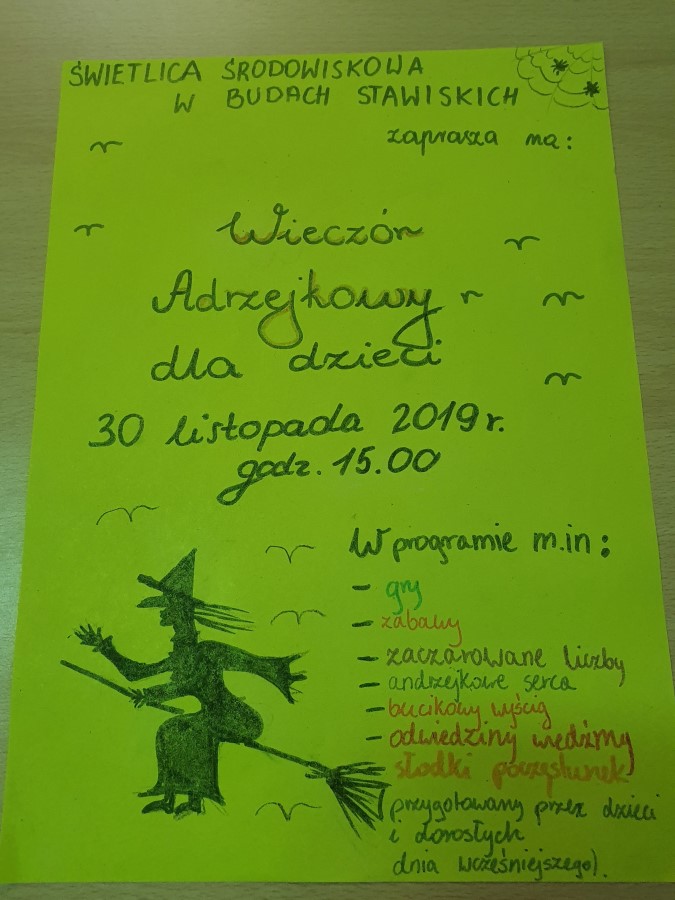 ŚWIETLICA ŚRODOWISKOWA
W BUDACH STAWISKICH
zaprasza na:
Wieczór
Adrzejkowy
dla dzieci
30 listopada 2019 r.
godz. 15.00
W programie m.in:
- gry
- zabawy
- zaczarowane liczby
- andrzejkowe serca
- bucikowy wyścig
- odwiedziny wiedźmy
słodki poczęstunek
(przygotowany przez dzieci
i dorosłych
dnia wcześniejszego).